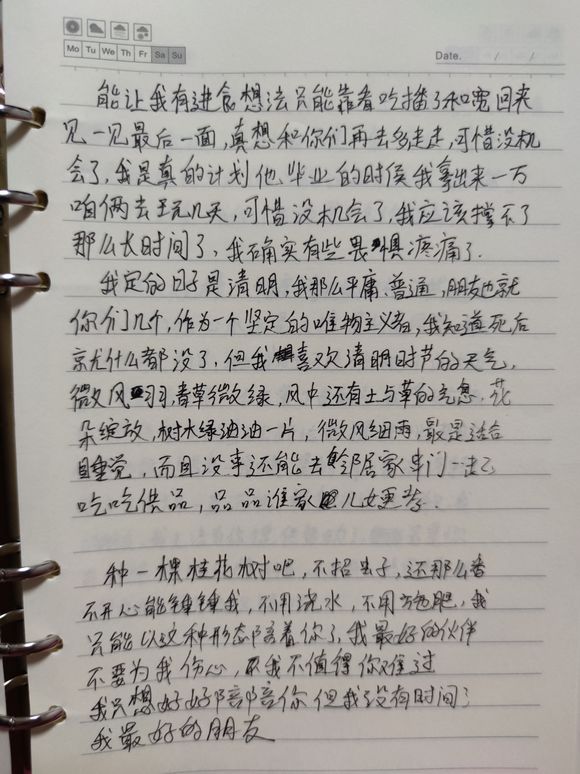 Mo Tu We Th Fr Sa Su
Date. / /
能让我有进食想法只能靠看吃播了和宽回来
见一见最后一面,真想和你们再去多走走,可惜没机
会了,我是真的计划他毕业的时侯我拿出来一万
咱俩去玩几天,可惜没机会了,我应该撑不了
那么长时间了,我确实有些畏惧疼痛了.
我定的日子是清明,我那么平庸、普通,朋友也就
你们几个,作为一个坚定的唯物主义者,我知道死后
就什么都没了,但我喜欢清明时节的天气,
微风习习,青草微绿,风中还有土与草的气息,花
朵绽放,树木绿油油一片,微风细雨,最是适合
睡觉,而且没事还能去邻居家串门一起
吃吃供品,品品谁家儿女更孝.
种一棵桂花树吧,不招虫子,还那么香
不开心能锤锤我,不用浇水,不用施肥,我
只能以这种形态陪着你了,我最好的伙伴
不要为我伤心,我不值得你难过
我只想好好陪陪你但我没有时间了
我最好的朋友